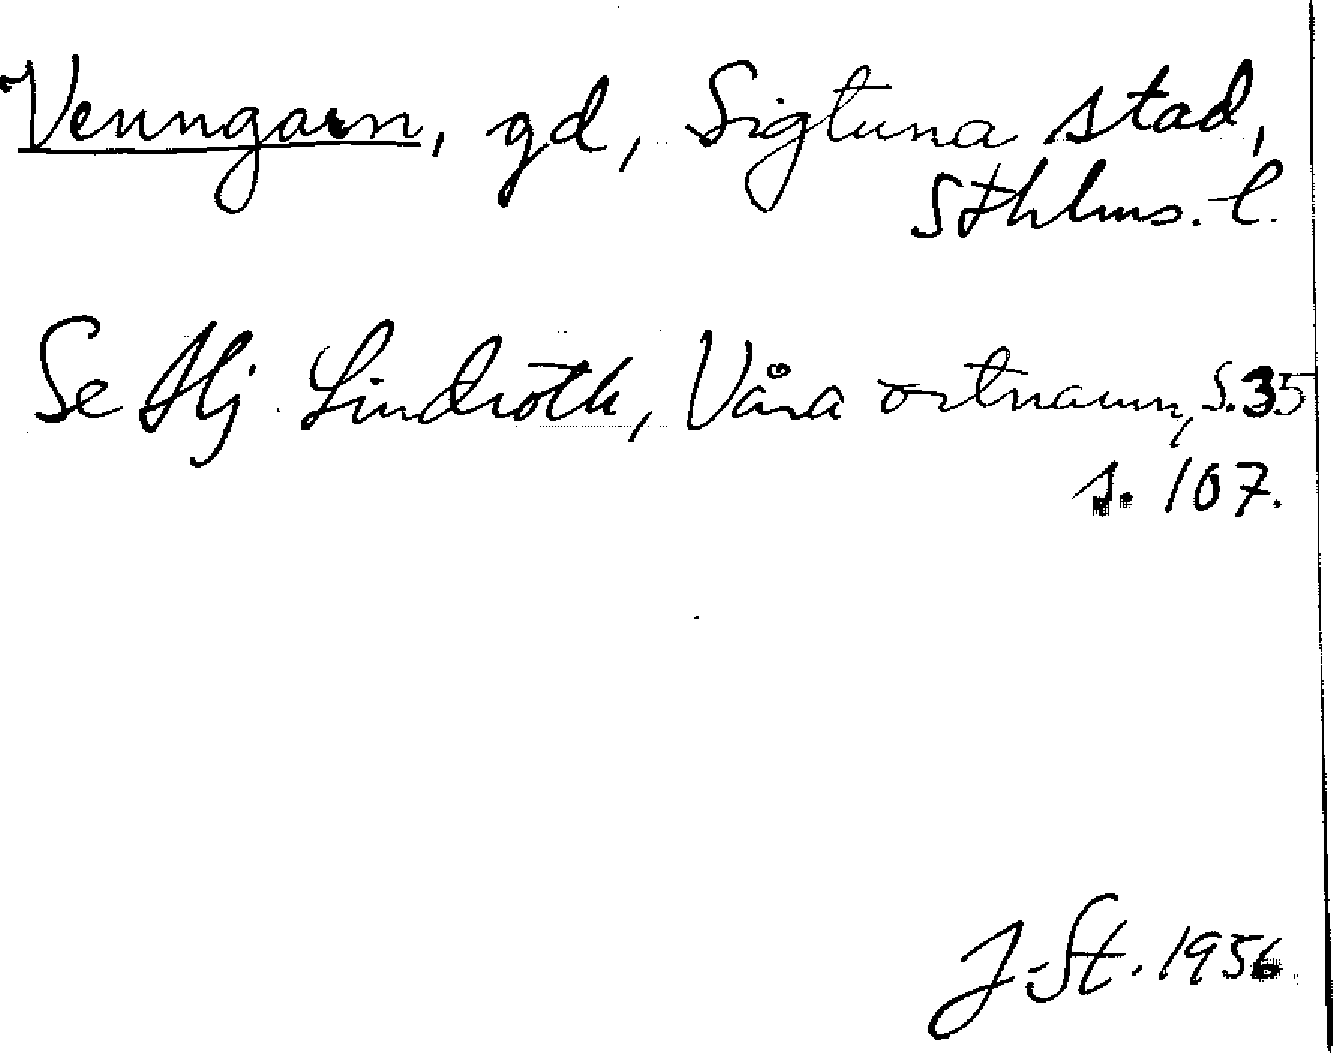 Venngarn, gd, Sigtuna stad,
Sthlms. l.
Se Hj. Lindroth, Våra ortnamn, s. 35
s. 107.
J. St. 1956